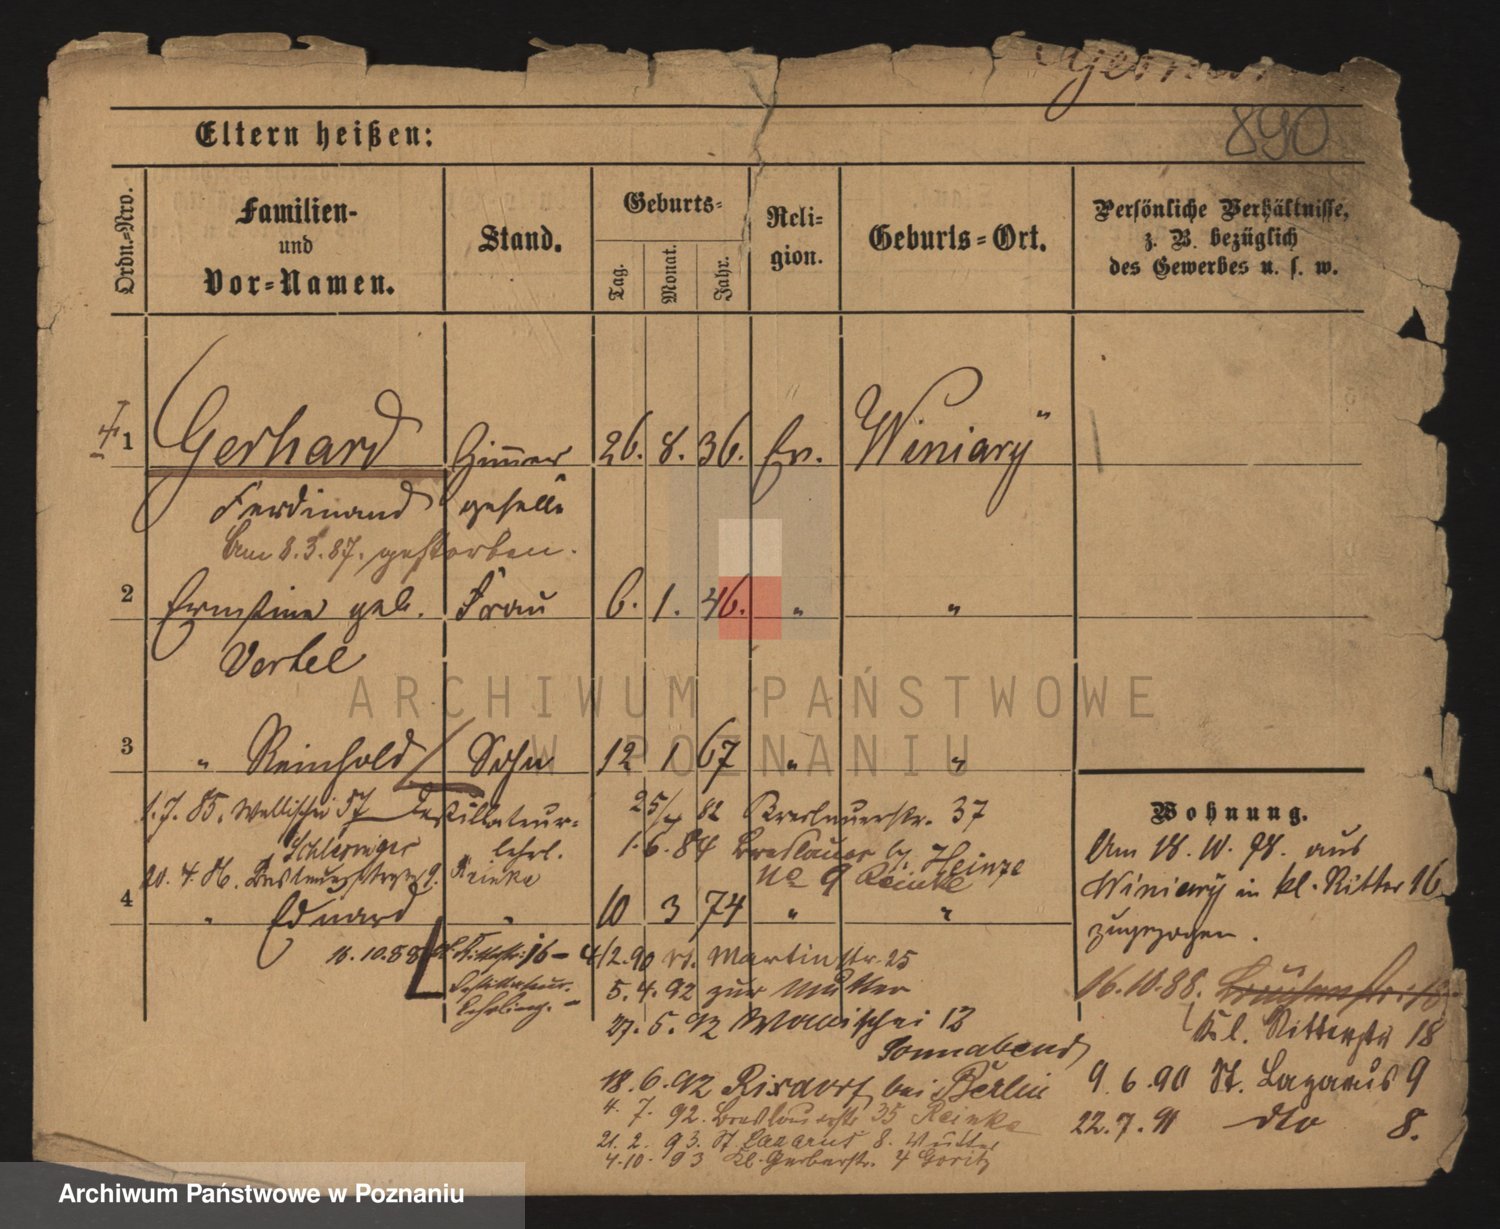 890
Eltern heißen:
Ordn.-Nro.
Familien-
und
Vor-Namen.
Stand.
Geburts-
Tag.
Monat.
Jahr.
Reli-
gion.
Geburts-Ort.
Persönliche Verhältnisse,
z. B. bezüglich
des Gewerbes u. s. w.
1 Gerhard 26. 8. 36. Ev. Winiary
Ferdinand geselle
Am 8.3.87. gestorben.
2 Ermstine geb. Frau 6. 1. 46. " "
Vertel
3 " Reinhold Sohn 12 1 67 " "
1.7.85. Wallischei 57 Destillateur-
lehrl.
25/4 82 Breslauerstr. 37
Schlesinger
1.6.84 Breslauer by. Heinze
20.4.86. Reinke
No 9 Reinke
4 " Eduard " 10 3 74 " "
16.10.88
4/2.90 St. Martinstr. 25
Lehrling.
5.4.92 zur Mutter
27.5.92 Wallischei 13
Sonnabend
18.6.92 Rixdorf bei Berlin
4.7.92. Breslauerstr 35 Reinke
21.2.93. St Lazarus 8. Mutter
4.10.93 Kl. Gerberstr. 4 Goritz
Wohnung.
Am 18.10.78. aus
Winiary in kl. Ritter 16
zugezogen.
16.10.88.
Kl. Ritterstr 18
9.6.90 St. Lazarus 9
22.7.91 dto 8.
ARCHIWUM PAŃSTWOWE
W POZNANIU
Archiwum Państwowe w Poznaniu